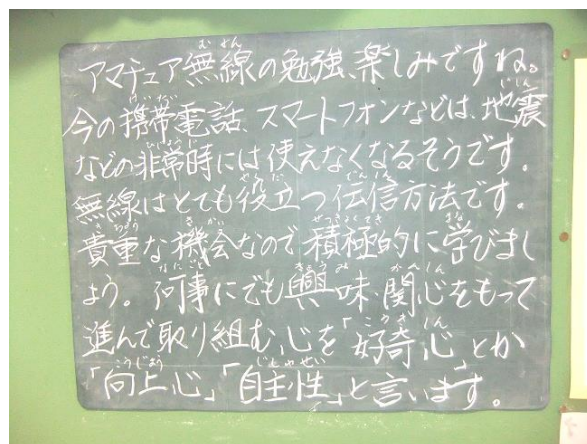 アマチュア無線の勉強、楽しみですね。
今の携帯電話、スマートフォンなどは、地震
などの非常時には使えなくなるそうです。
無線はとても役立つ伝信方法です。
貴重な機会なので積極的に学びまし
ょう。何事にでも興味、関心をもって
進んで取り組む心を「好奇心」とか
「向上心」「自主性」と言います。